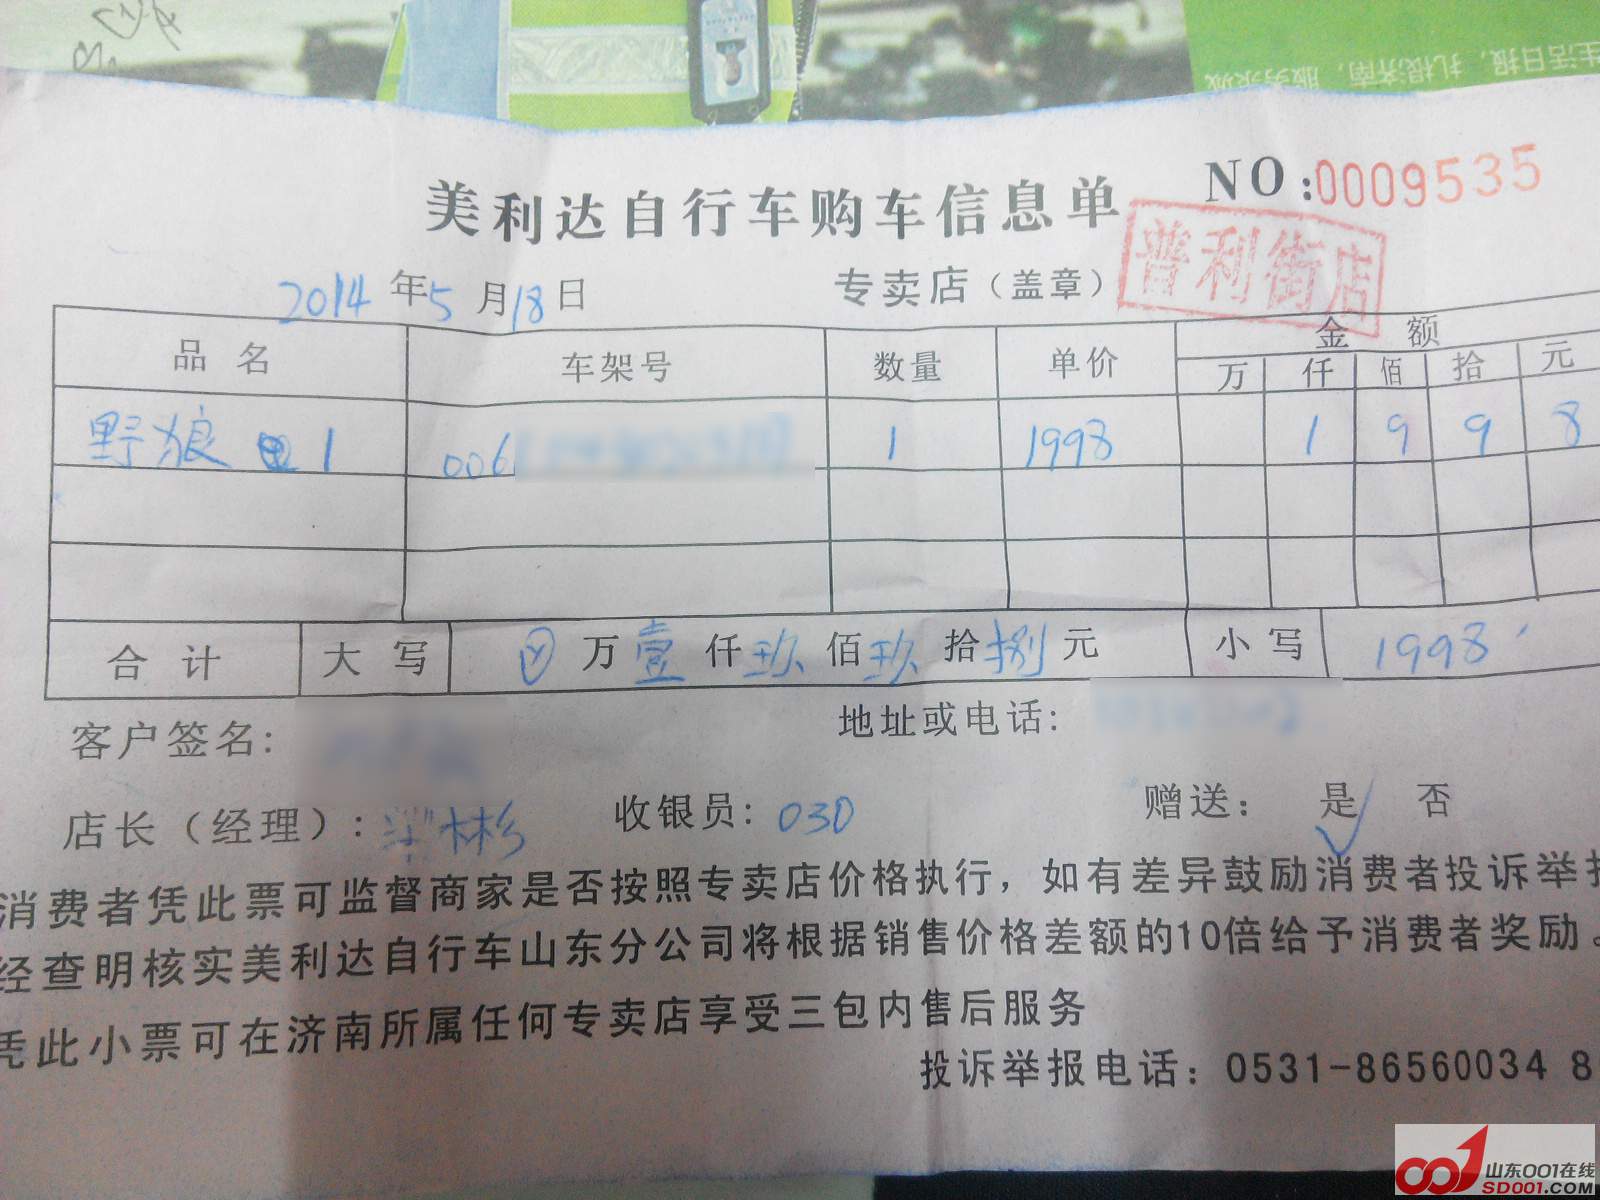 生活日报，扎根济南，服务泉城
美利达自行车购车信息单 NO:0009535
普利街店
2014年5月18日 专卖店（盖章）
品名 车架号 数量 单价 金额
万 仟 佰 拾 元
野狼 1 006 1 1998 1 9 9 8
合计 大写 万壹仟玖佰玖拾捌元 小写 1998
客户签名: 地址或电话:
店长（经理）: 林彬 收银员: 030 赠送: 是 否
消费者凭此票可监督商家是否按照专卖店价格执行，如有差异鼓励消费者投诉举
经查明核实美利达自行车山东分公司将根据销售价格差额的10倍给予消费者奖励。
凭此小票可在济南所属任何专卖店享受三包内售后服务
投诉举报电话：0531-86560034 8
山东001在线
SD001.COM